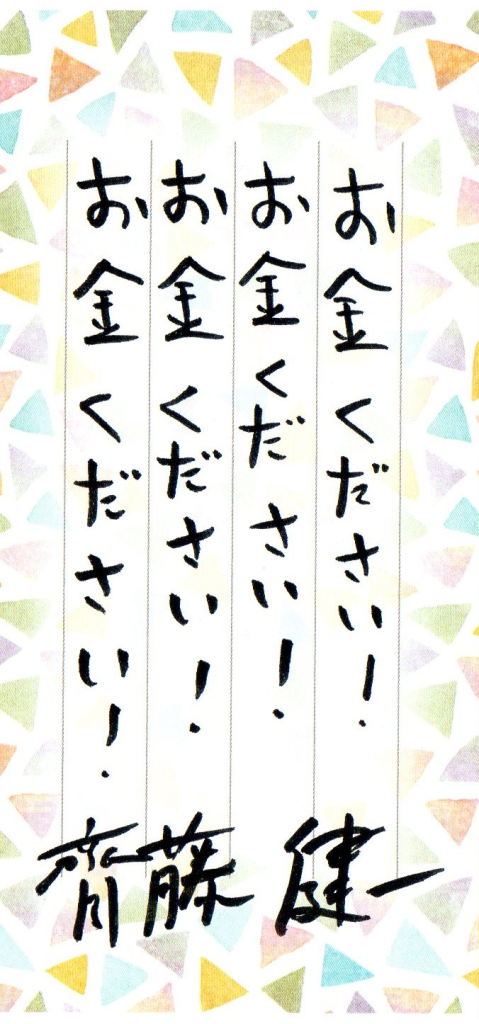 お金ください!
お金ください!
お金ください!
お金ください!
齊藤健一